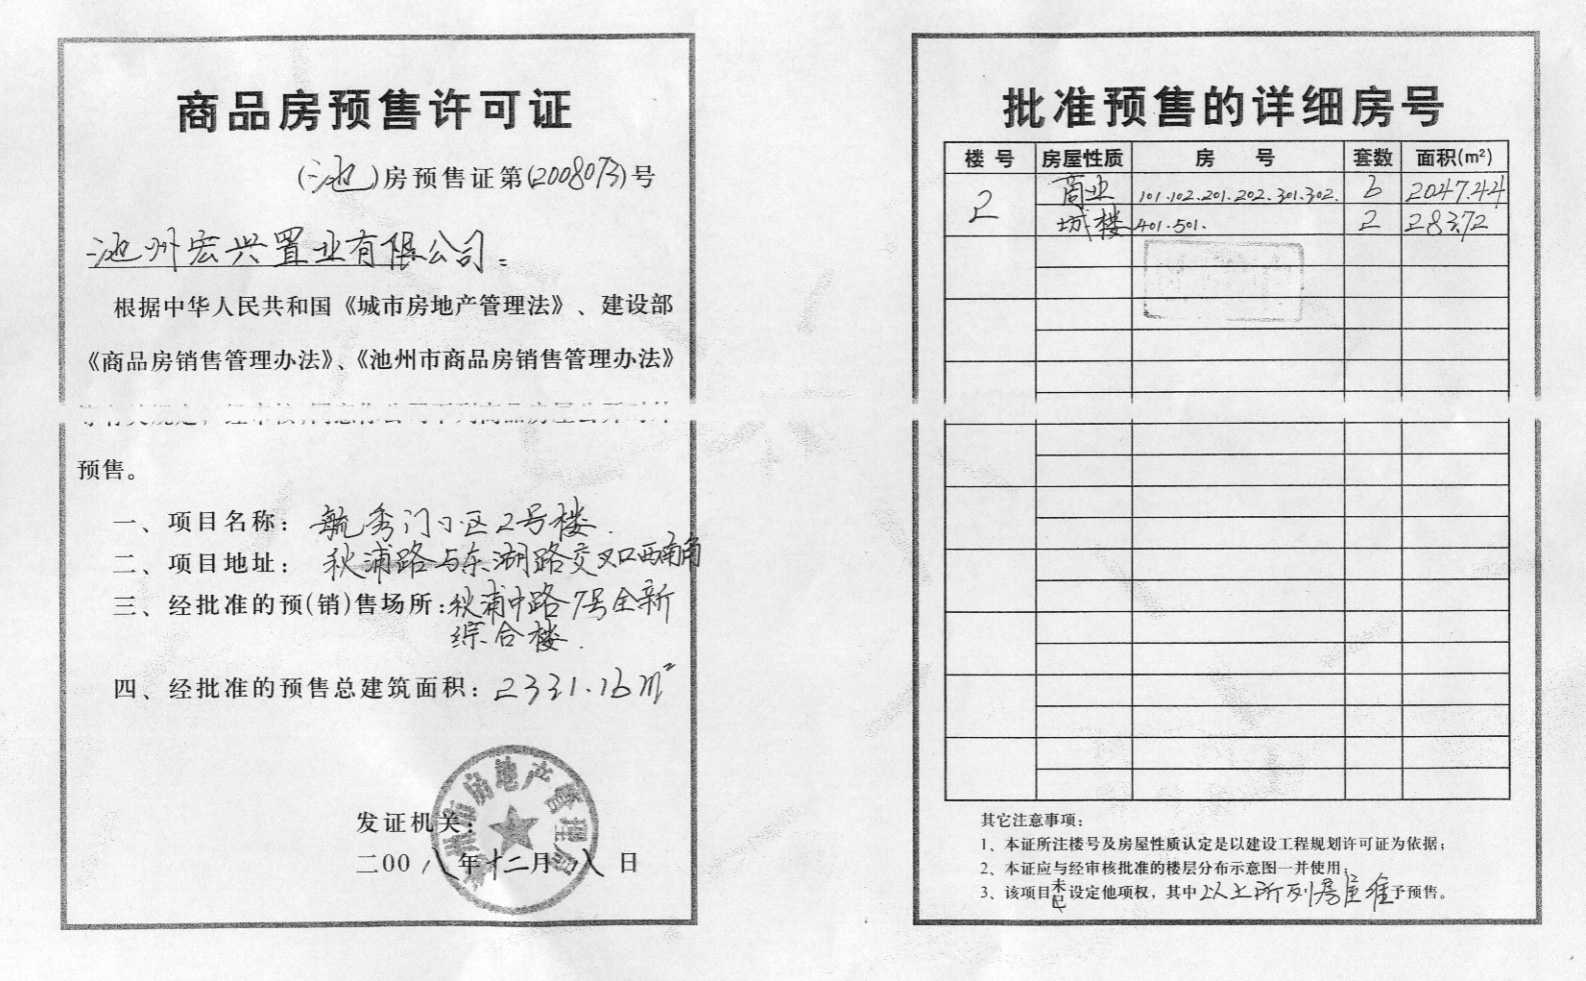 商品房预售许可证
(池)房预售证第(2008073)号
池州宏兴置业有限公司:
根据中华人民共和国《城市房地产管理法》、建设部
《商品房销售管理办法》、《池州市商品房销售管理办法》
预售。
一、项目名称: 毓秀门小区2号楼.
二、项目地址: 秋浦路与东湖路交叉口西南角
三、经批准的预(销)售场所:秋浦中路7号全新
综合楼.
四、经批准的预售总建筑面积: 2331.16m²
发证机关:
二00八年十二月八日
池州市房地产管理局
批准预售的详细房号
楼号 房屋性质 房号 套数 面积(m²)
2 商业 101.102.201.202.301.302. 6 2047.44
城楼 401.501. 2 283.72
其它注意事项:
1、本证所注楼号及房屋性质认定是以建设工程规划许可证为依据;
2、本证应与经审核批准的楼层分布示意图一并使用;
3、该项目未已设定他项权,其中以上所列房屋准予预售。